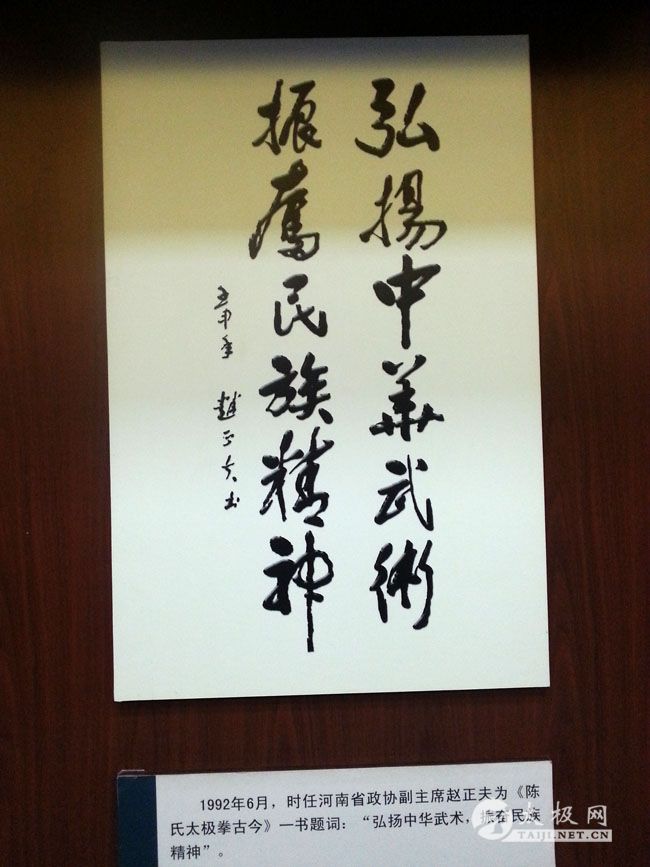 弘揚中華武術
振奮民族精神
壬申年 趙正夫书
1992年6月，时任河南省政协副主席赵正夫为《陈
氏太极拳古今》一书题词：“弘扬中华武术，振奋民族
精神”。
太极网
TAIJI.NET.CN